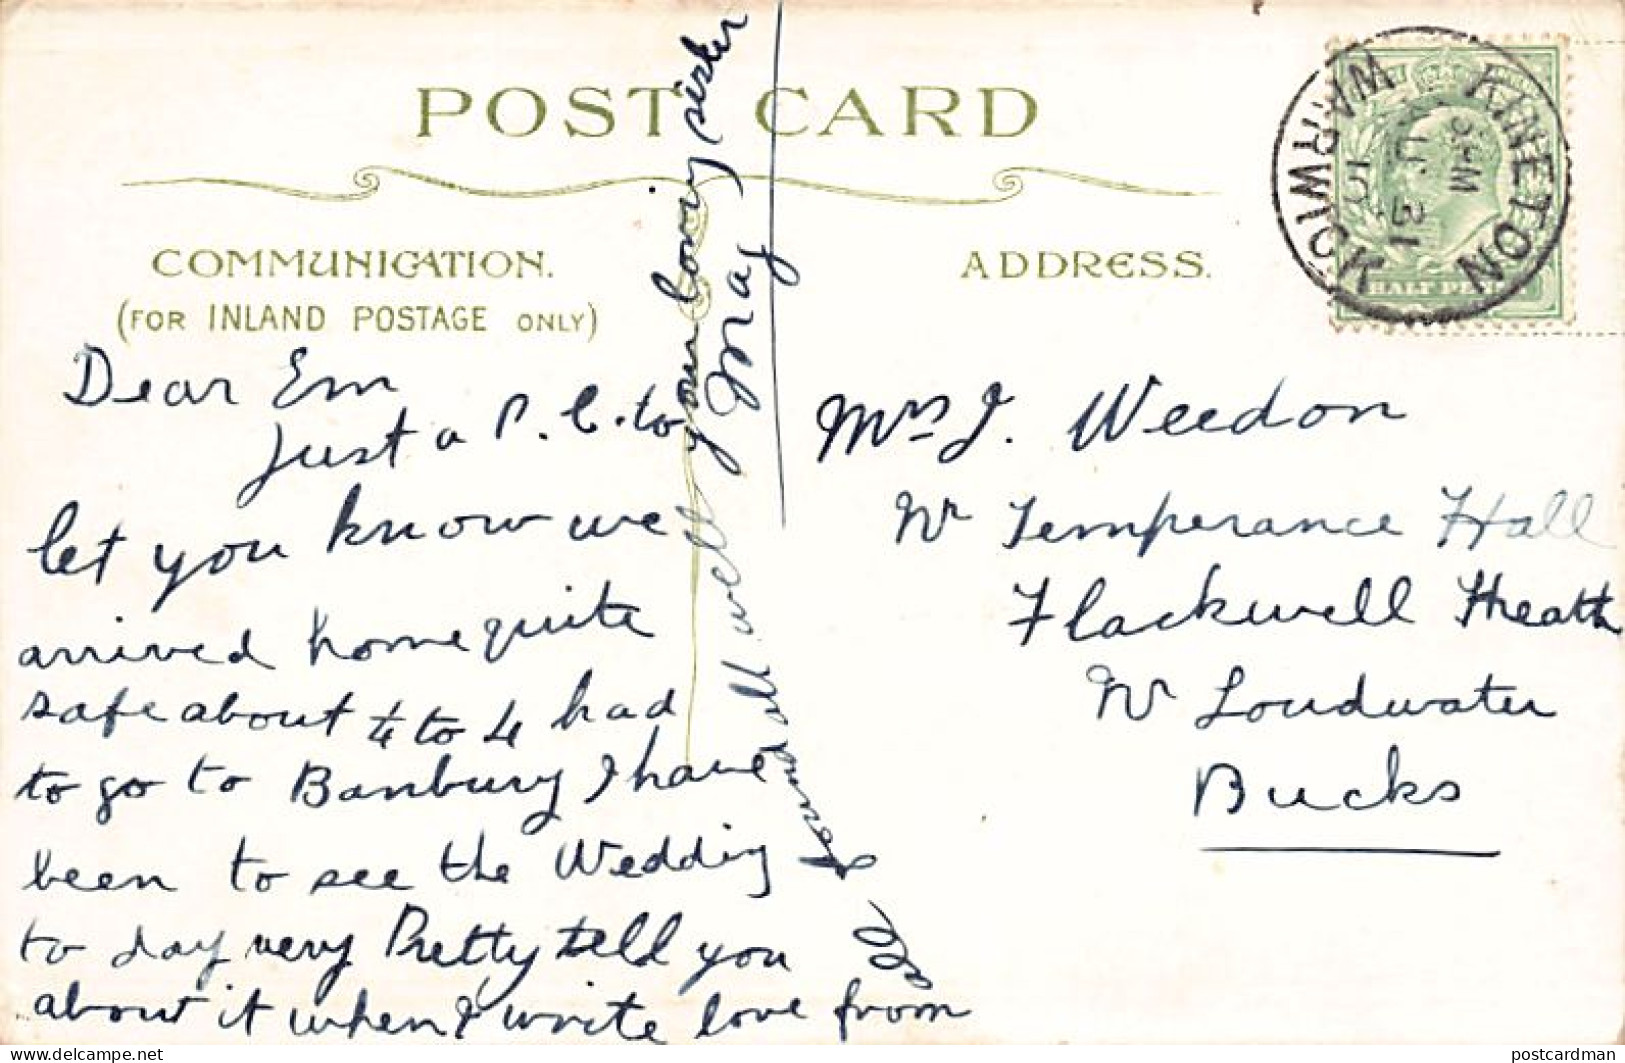 POST CARD
COMMUNICATION.
(FOR INLAND POSTAGE ONLY)
ADDRESS.
KINETON
WARWICK
31
10
HALF PENNY
Dear Em
Just a P.C. to
let you know we
arrived home quite
safe about ¼ to 4 had
to go to Banbury I have
been to see the Wedding
to day very Pretty tell you
about it when I write love from
We found all well
your loving sister
May
Mrs J. Weedon
Nr Temperance Hall
Flackwell Heath
Nr Loudwater
Bucks
postcardman
www.delcampe.net